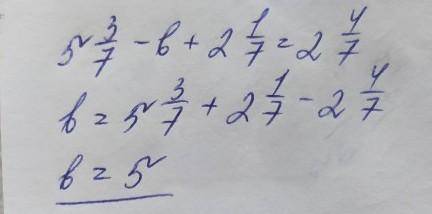 5 3/7 - b + 2 1/7 = 2 4/7
b = 5 3/7 + 2 1/7 - 2 4/7
b = 5